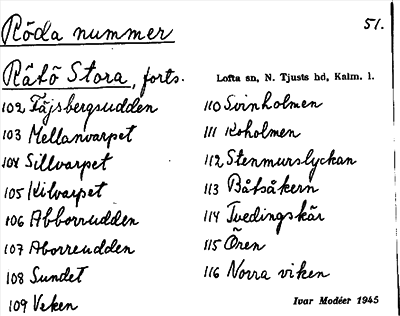 Röda nummer
51.
Rätö Stora, forts.
Lofta sn, N. Tjusts hd, Kalm. l.
102 Täjsbergsudden
103 Mellanvarpet
104 Sillvarpet
105 Kilvarpet
106 Abborrudden
107 Aborreudden
108 Sundet
109 Veken
110 Svinholmen
111 Koholmen
112 Stenmurslyckan
113 Båtsåkern
114 Tvedingskär
115 Ören
116 Norra viken
Ivar Modéer 1945